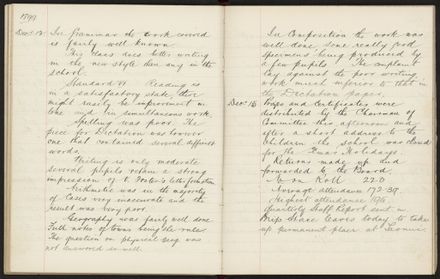 1899
Dec. 12. In Grammar the work covered
is fairly well known.
This class does better writing
in the new style than any in the
school.
Standard VI Reading is
in a satisfactory state, there
might easily be improvement in
tone and in simultaneous work.
Spelling was poor. The
piece for Dictation was however
one that contained several difficult
words.
Writing is only moderate
several pupils retain a strong
impression of
Arithmetic was in the majority
of cases very inaccurate and the
result was very poor.
Geography was fairly well done.
Full notes of towns being the rule.
The question on physical geog was
not answered so well.
In Composition the work was
well done, some really good
specimens being produced by
a few pupils. The complaint
lay against the poor writing,
work much inferior to that in
the Dictation paper.
Dec. 15 Prizes and Certificates were
distributed by the Chairman of
Committee this afternoon and
after a short address to the
children the school was closed
for the Xmas Holidays.
Returns made up and
forwarded to the Board
No on Roll 220
Average attendance 172.39.
Highest attendance 196.
Quarterly Staff Report sent in
Miss leaves today to take
up permanent place at